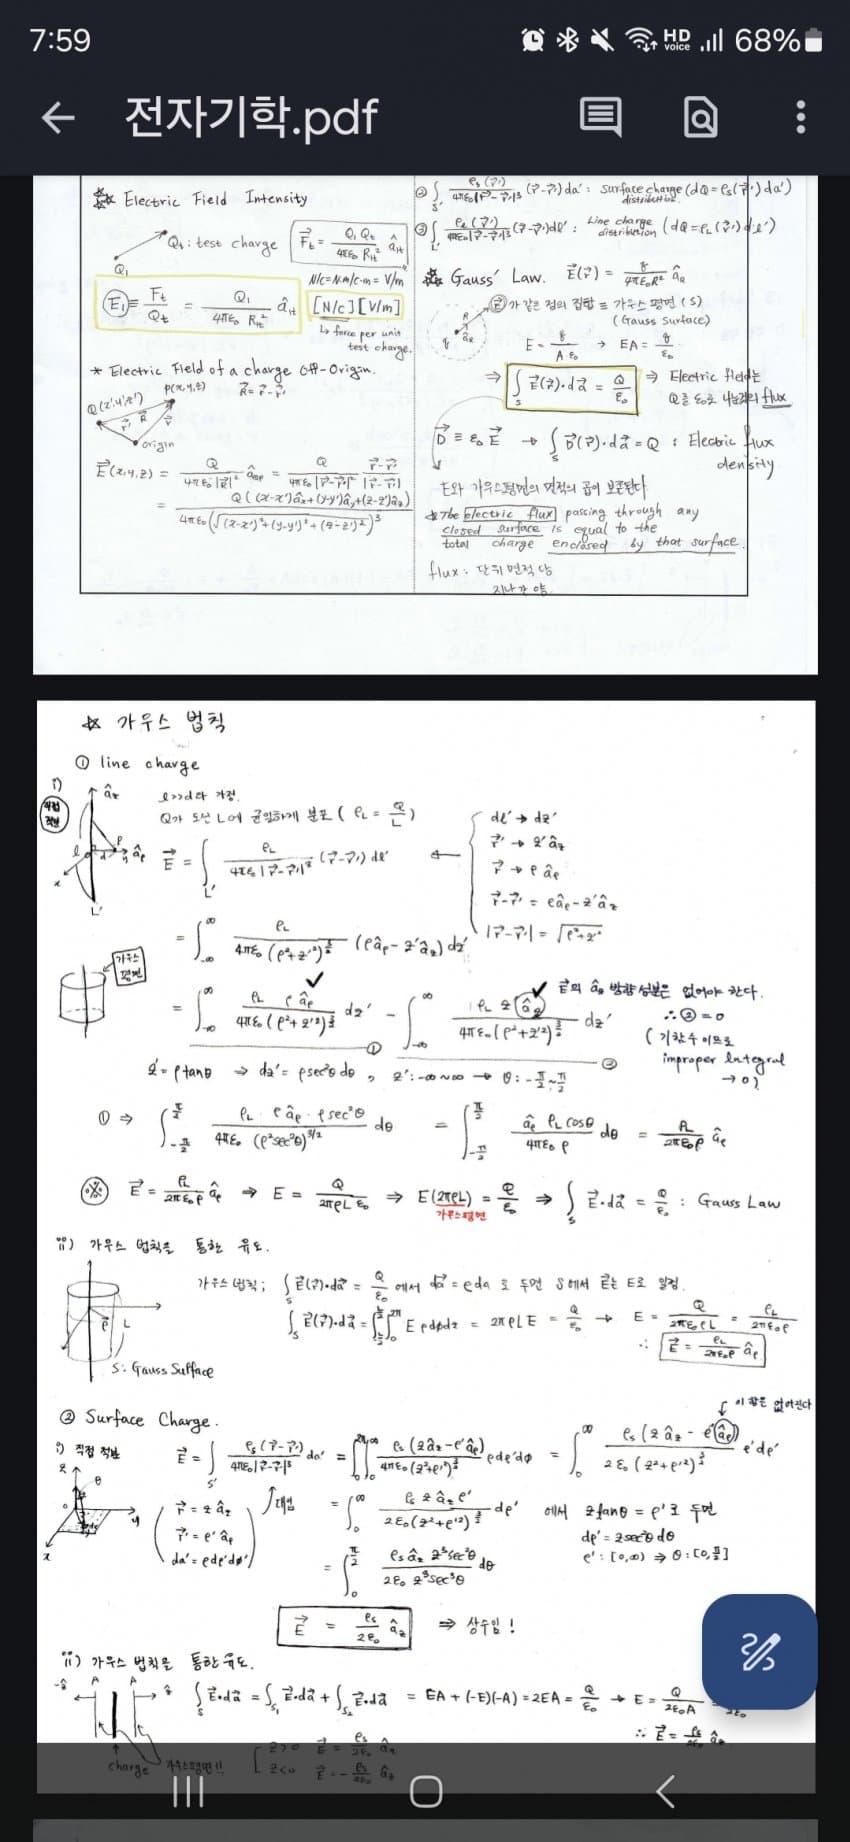 7:59
HD voice 68%
전자기학.pdf
Electric Field Intensity
Qt : test charge
F⃗t = Q₁Qt / 4πε₀ R₁t² â₁t
Q₁
N/C = N·m/C·m = V/m
E⃗₁ ≡ F⃗t / Qt = Q₁ / 4πε₀ R₁t² â₁t [N/C] [V/m]
↳ force per unit
test charge.
* Electric Field of a charge Off-Origin.
Q(x',y',z') P(x,y,z) R⃗ = r⃗ - r⃗'
origin
E⃗(x,y,z) = Q / 4πε₀|R⃗|² = Q / 4πε₀|r⃗-r⃗'|² (r⃗-r⃗') / |r⃗-r⃗'|
= Q((x-x')âx + (y-y')ây + (z-z')âz) / 4πε₀(√(x-x')²+(y-y')²+(z-z')²)³
② ∫s' ρs(r⃗') / 4πε₀|r⃗-r⃗'|³ (r⃗-r⃗')da' : Surface charge distribution (dQ = ρs(r⃗')da')
③ ∫L' ρL(r⃗') / 4πε₀|r⃗-r⃗'|³ (r⃗-r⃗')dl' : Line charge distribution (dQ = ρL(r⃗')dl')
Gauss' Law. E⃗(r⃗) = q / 4πε₀R² âR
E⃗가 같은 점의 집합 ≡ 가우스 평면 (S)
(Gauss Surface)
E = q / Aε₀ → EA = q / ε₀
⇒ ∫s E⃗(r⃗)·da⃗ = Q / ε₀ ⇒ Electric field는
Q를 ε₀로 나눈것의 flux
D⃗ ≡ ε₀E⃗ → ∫s D⃗(r⃗)·da⃗ = Q : Electric flux
density
E와 가우스평면의 면적의 곱이 보존된다
The electric flux passing through any
closed surface is equal to the
total charge enclosed by that surface.
flux : 단위 면적 당
지나간 양.
☆ 가우스 법칙
① line charge
i) 직접 적분
l>>d라 가정.
Q가 도선 L에 균일하게 분포 (ρL = Q/L)
E⃗ = ∫L' ρL / 4πε₀|r⃗-r⃗'|³ (r⃗-r⃗')dl' ←
dl' → dz'
r⃗' → z'âz
r⃗ → ρâρ
r⃗-r⃗' = ρâρ - z'âz
|r⃗-r⃗'| = √ρ²+z'²
= ∫-∞^∞ ρL / 4πε₀(ρ²+z'²)^3/2 (ρâρ - z'âz)dz'
가우스 평면
= ∫-∞^∞ ρL ρâρ / 4πε₀(ρ²+z'²)^3/2 dz' - ∫-∞^∞ ρL z âz / 4πε₀(ρ²+z'²)^3/2 dz'
① ②
E⃗의 âz 방향 성분은 없어야 한다.
∴ ② = 0
(기함수이므로
improper Integral
→ 0)
z' = ρtanθ ⇒ dz' = ρsec²θ dθ , z' : -∞~∞ → θ : -π/2~π/2
① ⇒ ∫-π/2^π/2 ρL · ρâρ · ρsec²θ / 4πε₀(ρ²sec²θ)^3/2 dθ = ∫-π/2^π/2 âρ ρL cosθ / 4πε₀ρ dθ = ρL / 2πε₀ρ âρ
※ E⃗ = ρL / 2πε₀ρ âρ ⇒ E = Q / 2πρL ε₀ ⇒ E(2πρL) = Q / ε₀ ⇒ ∫s E⃗·da⃗ = Q / ε₀ : Gauss Law
가우스평면
ii) 가우스 법칙을 통한 유도.
가우스 법칙 ; ∫s E⃗(r⃗)·da⃗ = Q / ε₀ 에서 da⃗ = ρda 로 두면 S에서 E⃗는 E로 일정.
∫s E⃗(r⃗)·da⃗ = ∫∫₀^2π E ρdφdz = 2πρLE = Q / ε₀ → E = Q / 2πε₀ρL = ρL / 2πε₀ρ
∴ E⃗ = ρL / 2πε₀ρ âρ
S : Gauss Surface
② Surface Charge.
이 항은 없어진다
i) 직접 적분
E⃗ = ∫s' ρs(r⃗-r⃗') / 4πε₀|r⃗-r⃗'|³ da' = ∫₀^2π∫₀^∞ ρs(zâz-ρ'âρ) / 4πε₀(z²+ρ'²)^3/2 ρdρ'dφ = ∫₀^∞ ρs(zâz - ρ'âρ) / 2ε₀(z²+ρ'²)^3/2 ρ'dρ'
r⃗ = zâz
r⃗' = ρ'âρ
da' = ρdρ'dφ'
대입
= ∫₀^∞ ρs z âz ρ' / 2ε₀(z²+ρ'²)^3/2 dρ' 에서 ztanθ = ρ'로 두면
dρ' = zsec²θ dθ
ρ' : [0,∞) ⇒ θ : [0, π/2]
= ∫₀^π/2 ρs âz z³sec²θ / 2ε₀ z³sec³θ dθ
E⃗ = ρs / 2ε₀ âz ⇒ 상수임 !
ii) 가우스 법칙을 통한 유도.
∫s E⃗·da⃗ = ∫s₁ E⃗·da⃗ + ∫s₂ E⃗·da⃗ = EA + (-E)(-A) = 2EA = Q / ε₀ → E = Q / 2ε₀A
∴ E⃗ = ρs / 2ε₀ âz
z>0 E⃗ = ρs / 2ε₀ âz
z<0 E⃗ = - ρs / 2ε₀ âz
charge 가우스평면!!